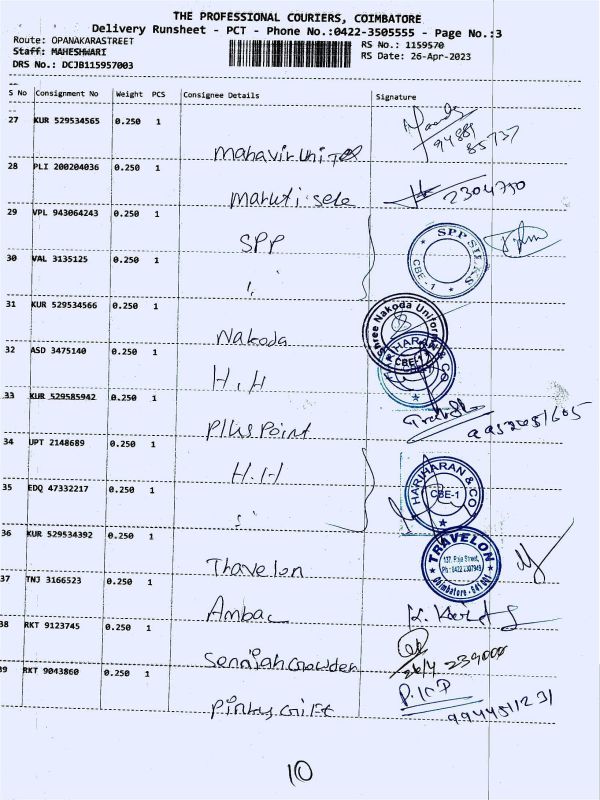 THE PROFESSIONAL COURIERS, COIMBATORE
Delivery Runsheet - PCT - Phone No.:0422-3505555 - Page No.:3
Route: OPANAKARASTREET
Staff: MAHESHWARI
DRS No.: DCJB115957003
RS No.: 1159570
RS Date: 26-Apr-2023
S No Consignment No Weight PCS Consignee Details Signature
27 KUR 529534565 0.250 1
94889
85737
Mahavir United
28 PLI 200204036 0.250 1
Maruti sele 2304750
29 VPL 943064243 0.250 1
SPP SPP SILKS CBE - 1
30 VAL 3135125 0.250 1
31 KUR 529534566 0.250 1
Nakoda Shree Nakoda Uniform CBE-1
32 ASD 3475140 0.250 1
H.H HARIHARAN & CO
33 KUR 529585942 0.250 1
Plus Point
34 UPT 2148689 0.250 1
H.H HARIHARAN & CO CBE-1
35 EDQ 47332217 0.250 1
36 KUR 529534392 0.250 1
Thavelon TRAVELON 137, Raja Street, Ph : 0422 2307949 Coimbatore - 641 001
37 TNJ 3166523 0.250 1
Ambac
38 RKT 9123745 0.250 1
26/4 239000
39 RKT 9043860 0.250 1
Pinkys Gift 9944511231
10